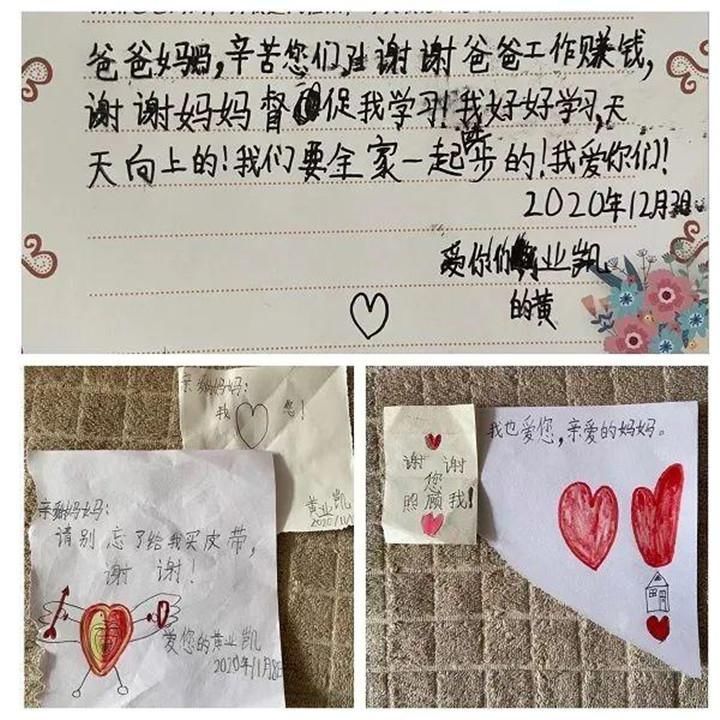 爸爸妈妈,辛苦您们了,谢谢爸爸工作赚钱,
谢谢妈妈督促我学习!我好好学习,天
天向上的!我们要全家一起进步的!我爱你们!
2020年12月3日
爱你们业凯
的黄
亲爱妈妈:
我♡您!
黄业凯
2020/11/
亲爱妈妈:
请别忘了给我买皮带,
谢谢!
爱您的黄业凯
2020年11月28日
谢谢
您
照顾我!
我也爱您,亲爱的妈妈。